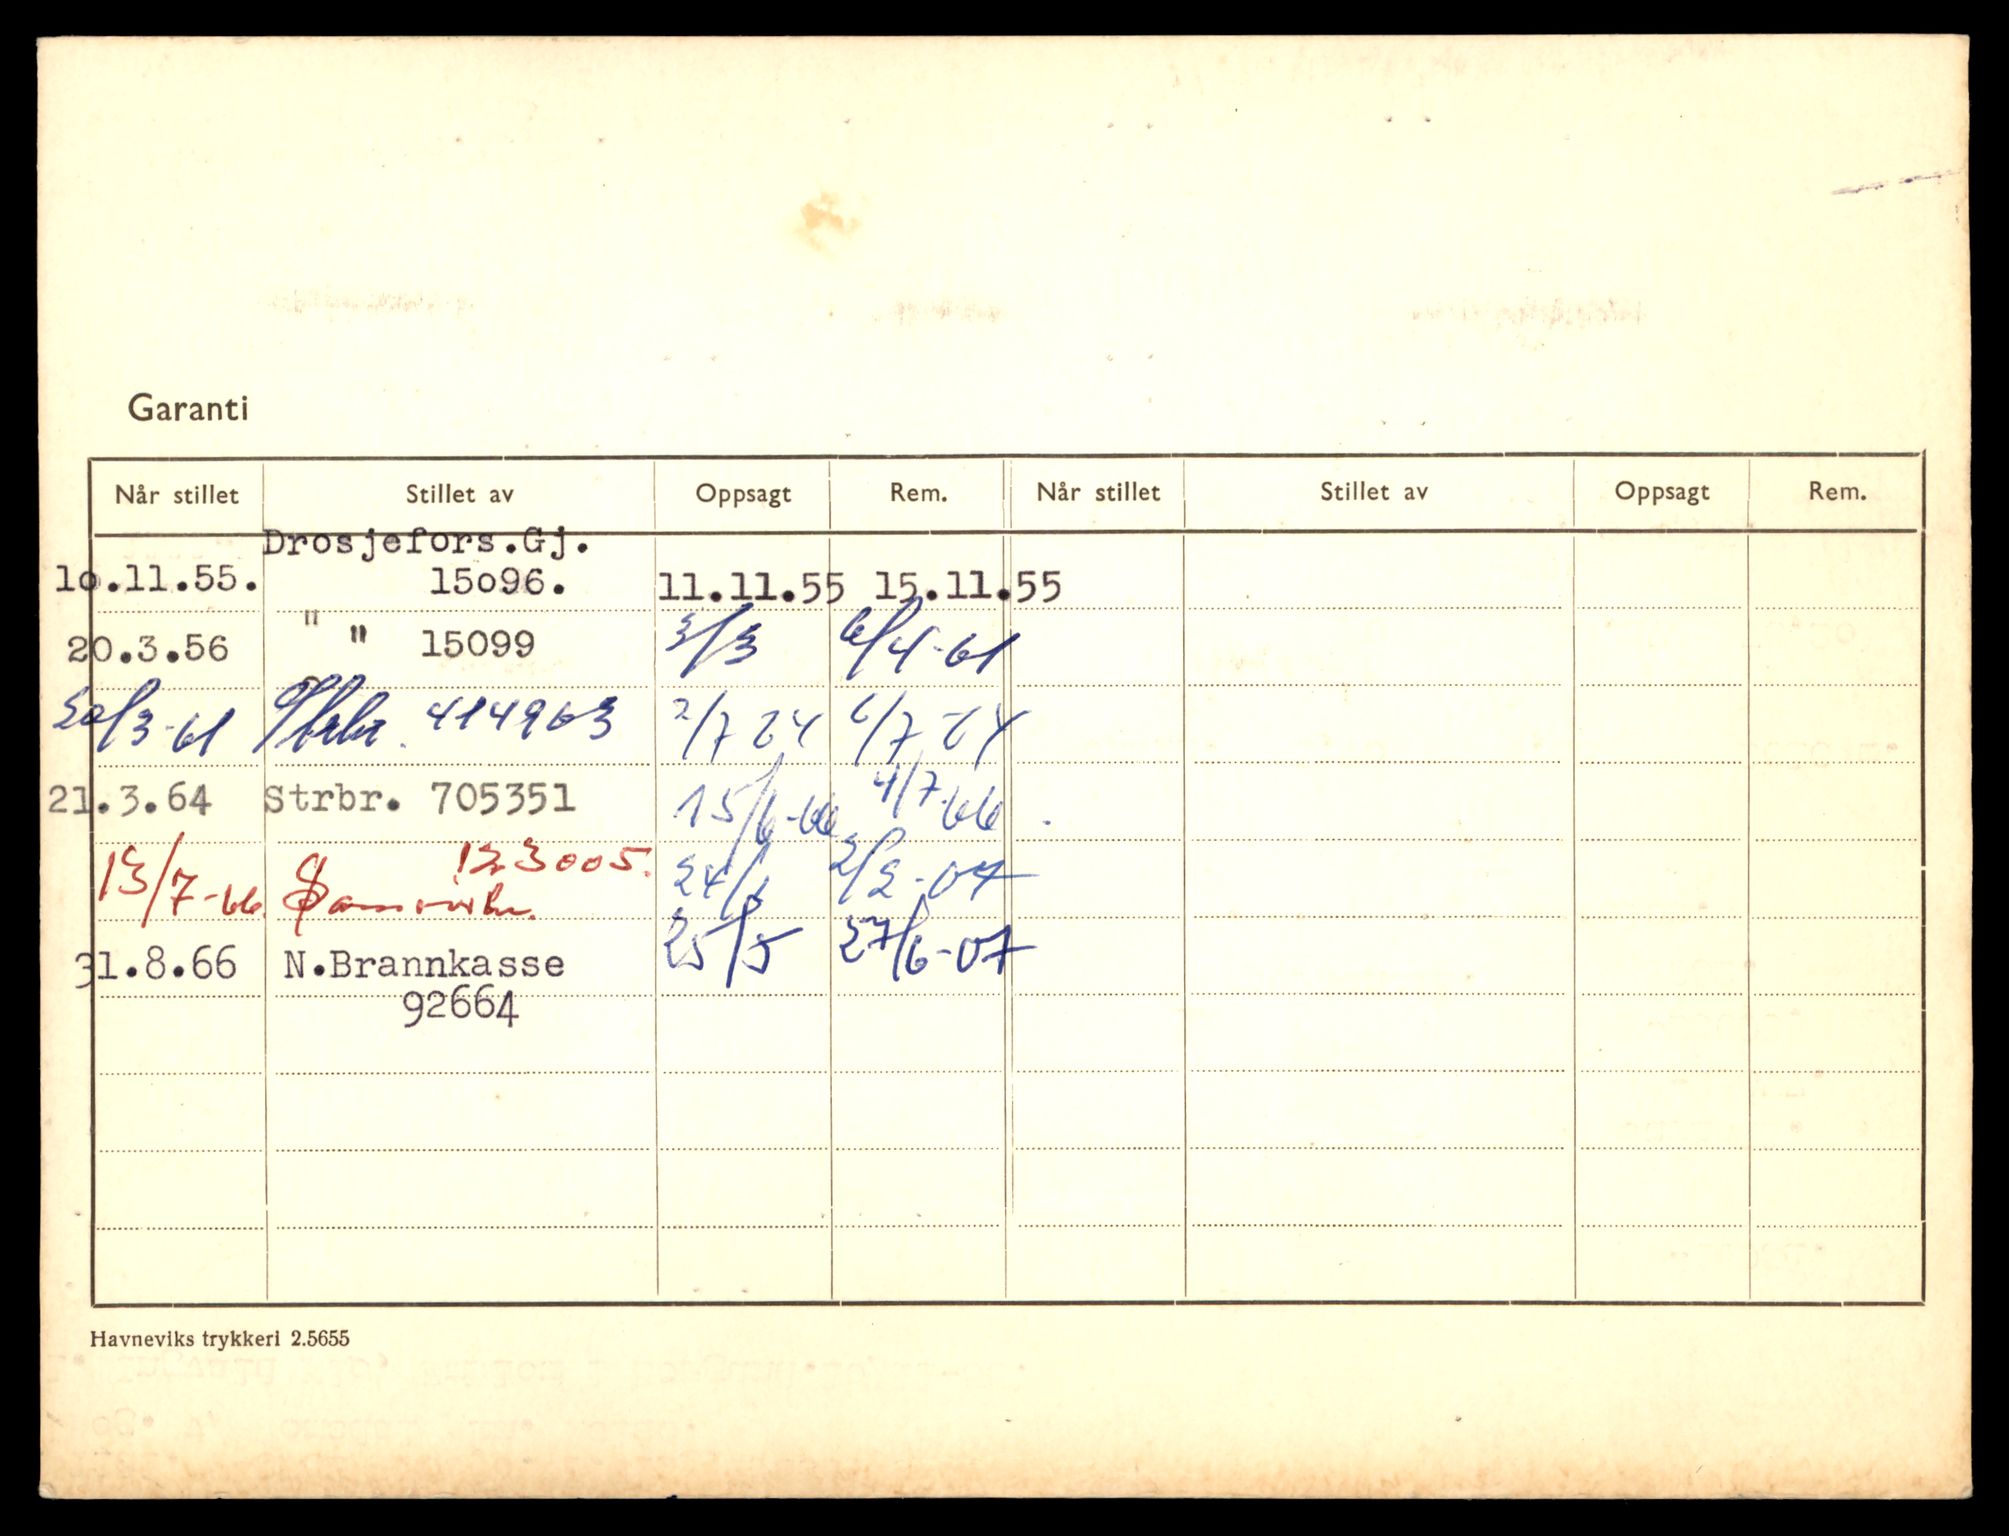 Garanti
Når stillet Stillet av Oppsagt Rem. Når stillet Stillet av Oppsagt Rem.
Drosjefors.Gj.
10.11.55. 15096. 11.11.55 15.11.55
20.3.56 " " 15099 3/3 6/4-61
20/3-61 414963 2/7 64 6/7 64
21.3.64 Strbr. 705351 15/6-66 4/7-66
13/7-66 123005.
Samvirke 24/1 2/2-07
31.8.66 N.Brannkasse 25/5 27/6-07
92664
Havneviks trykkeri 2.5655